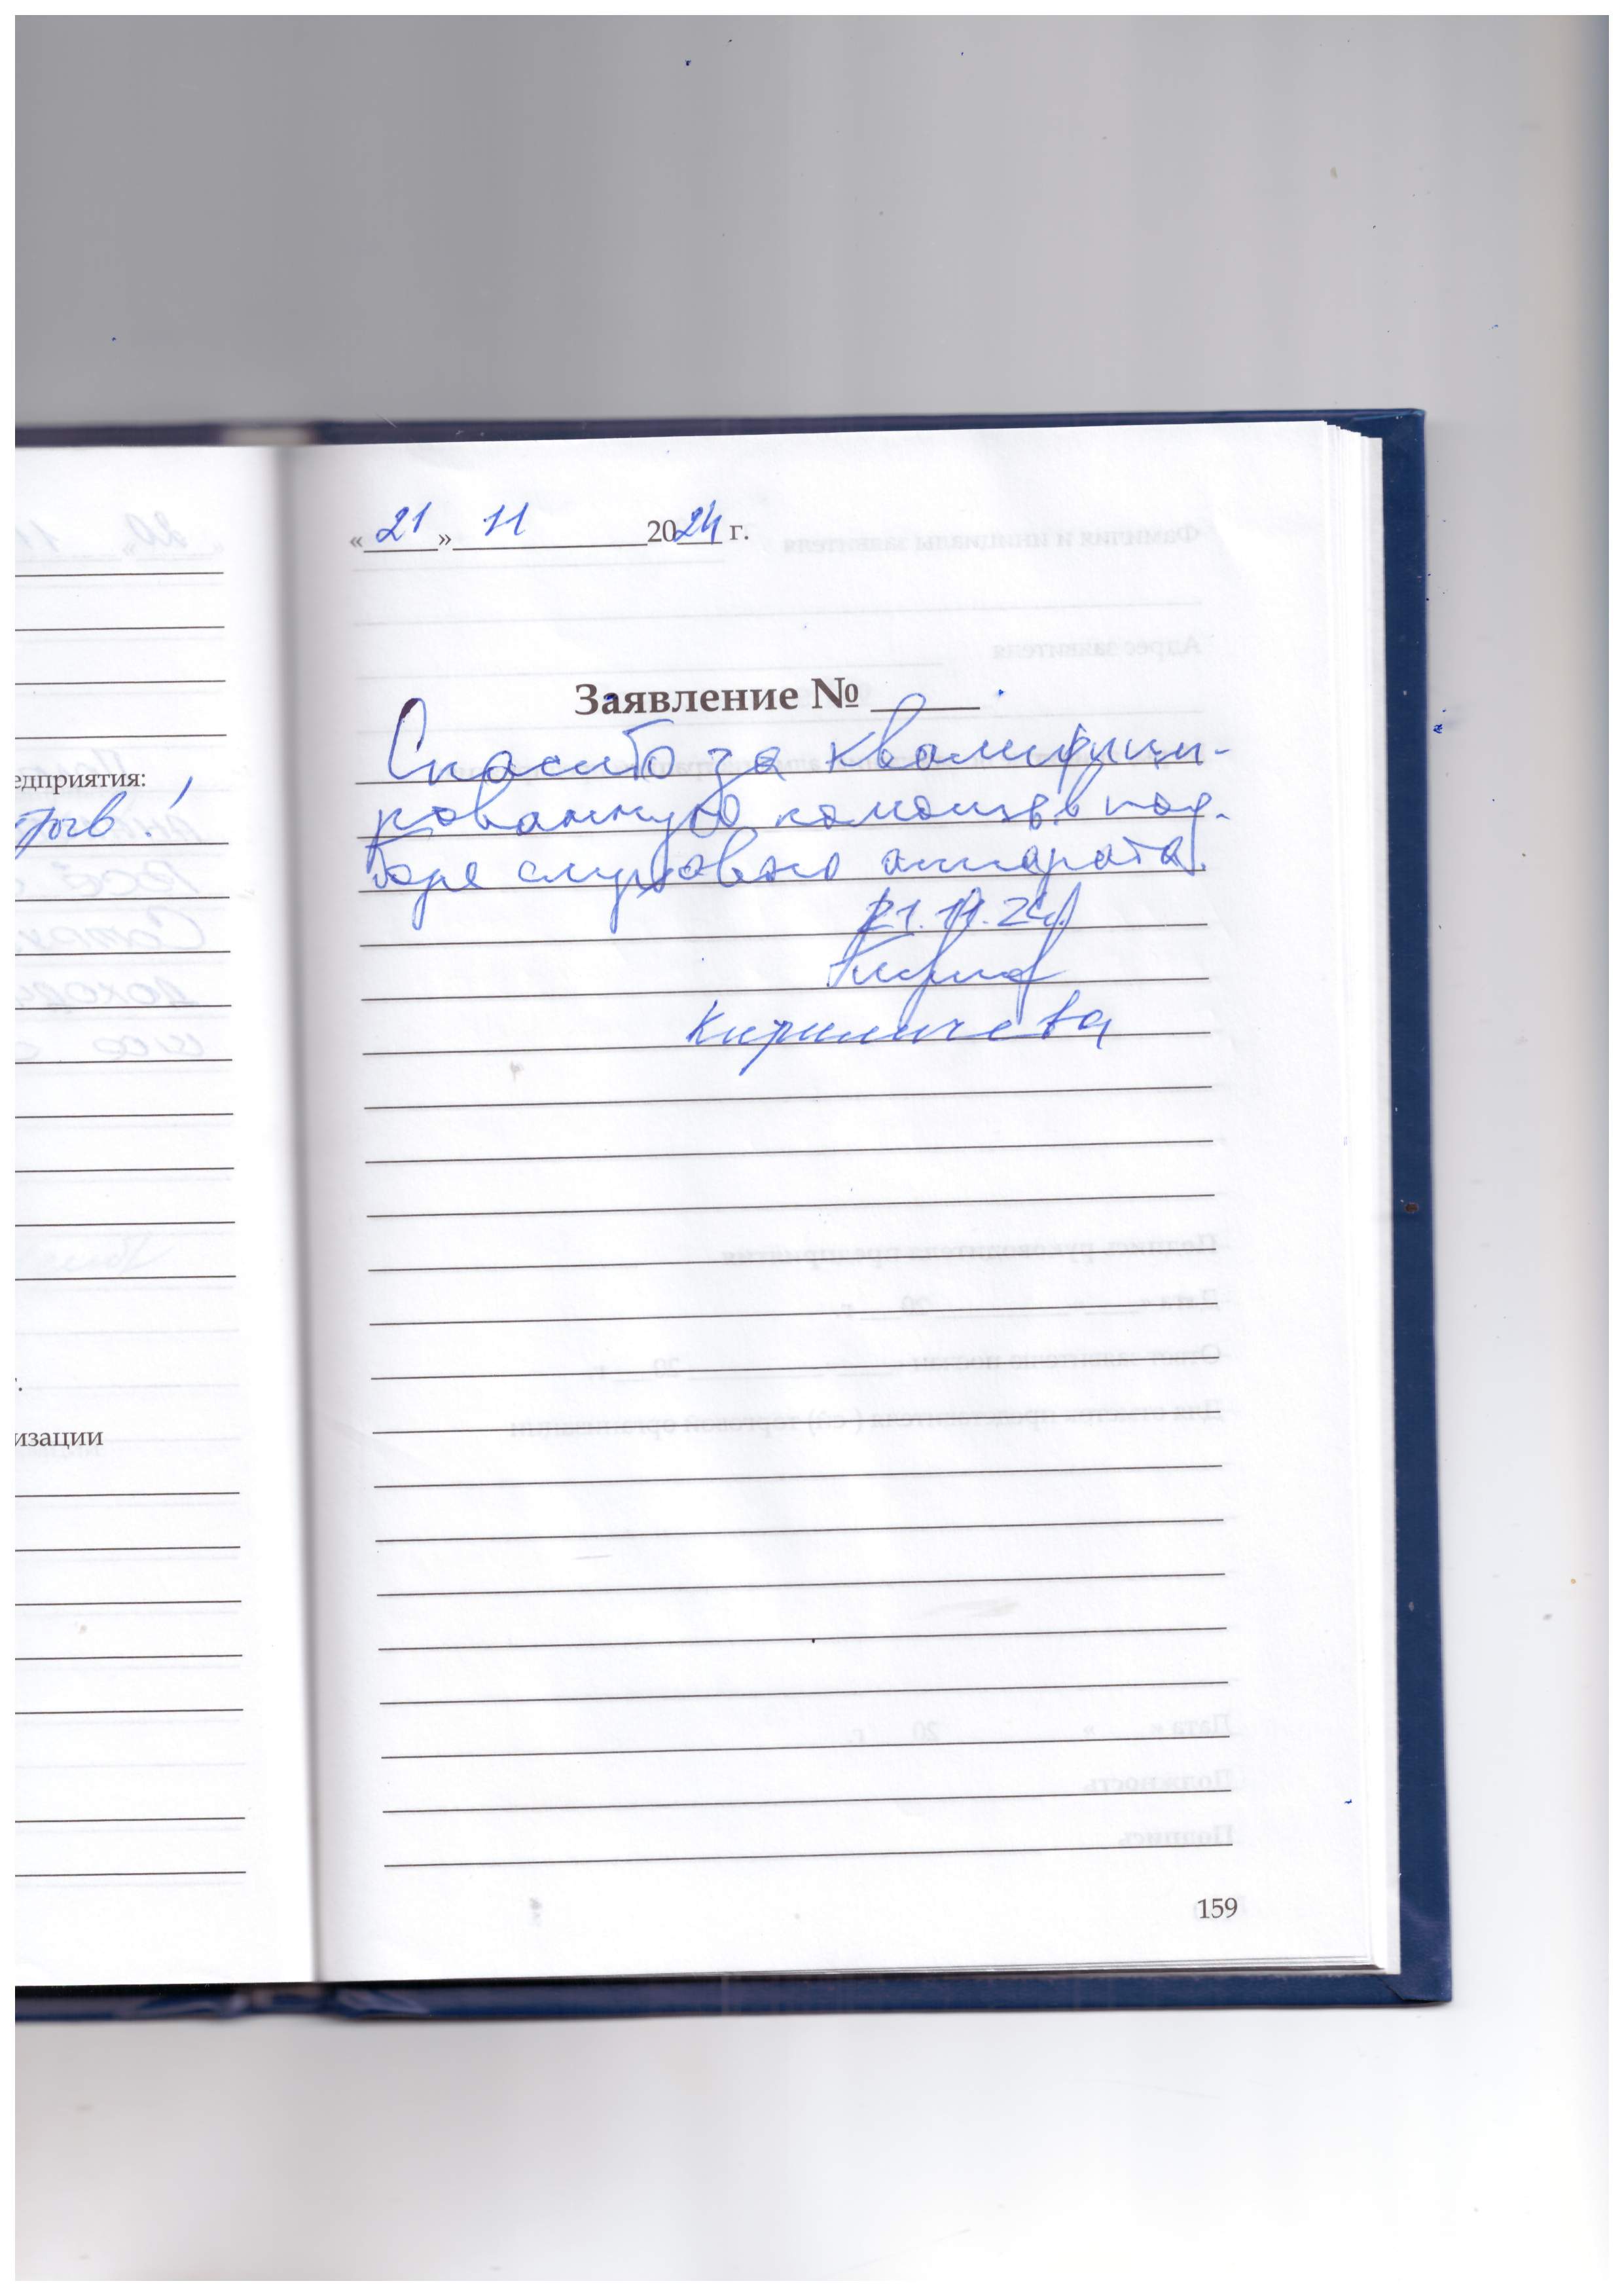 «21» 11 2024 г.
Заявление №
Спасибо за квалифици-
рованную помощь в под-
боре слухового аппарата.
21.11.24.
Кириличева
159
едприятия:
!
изации